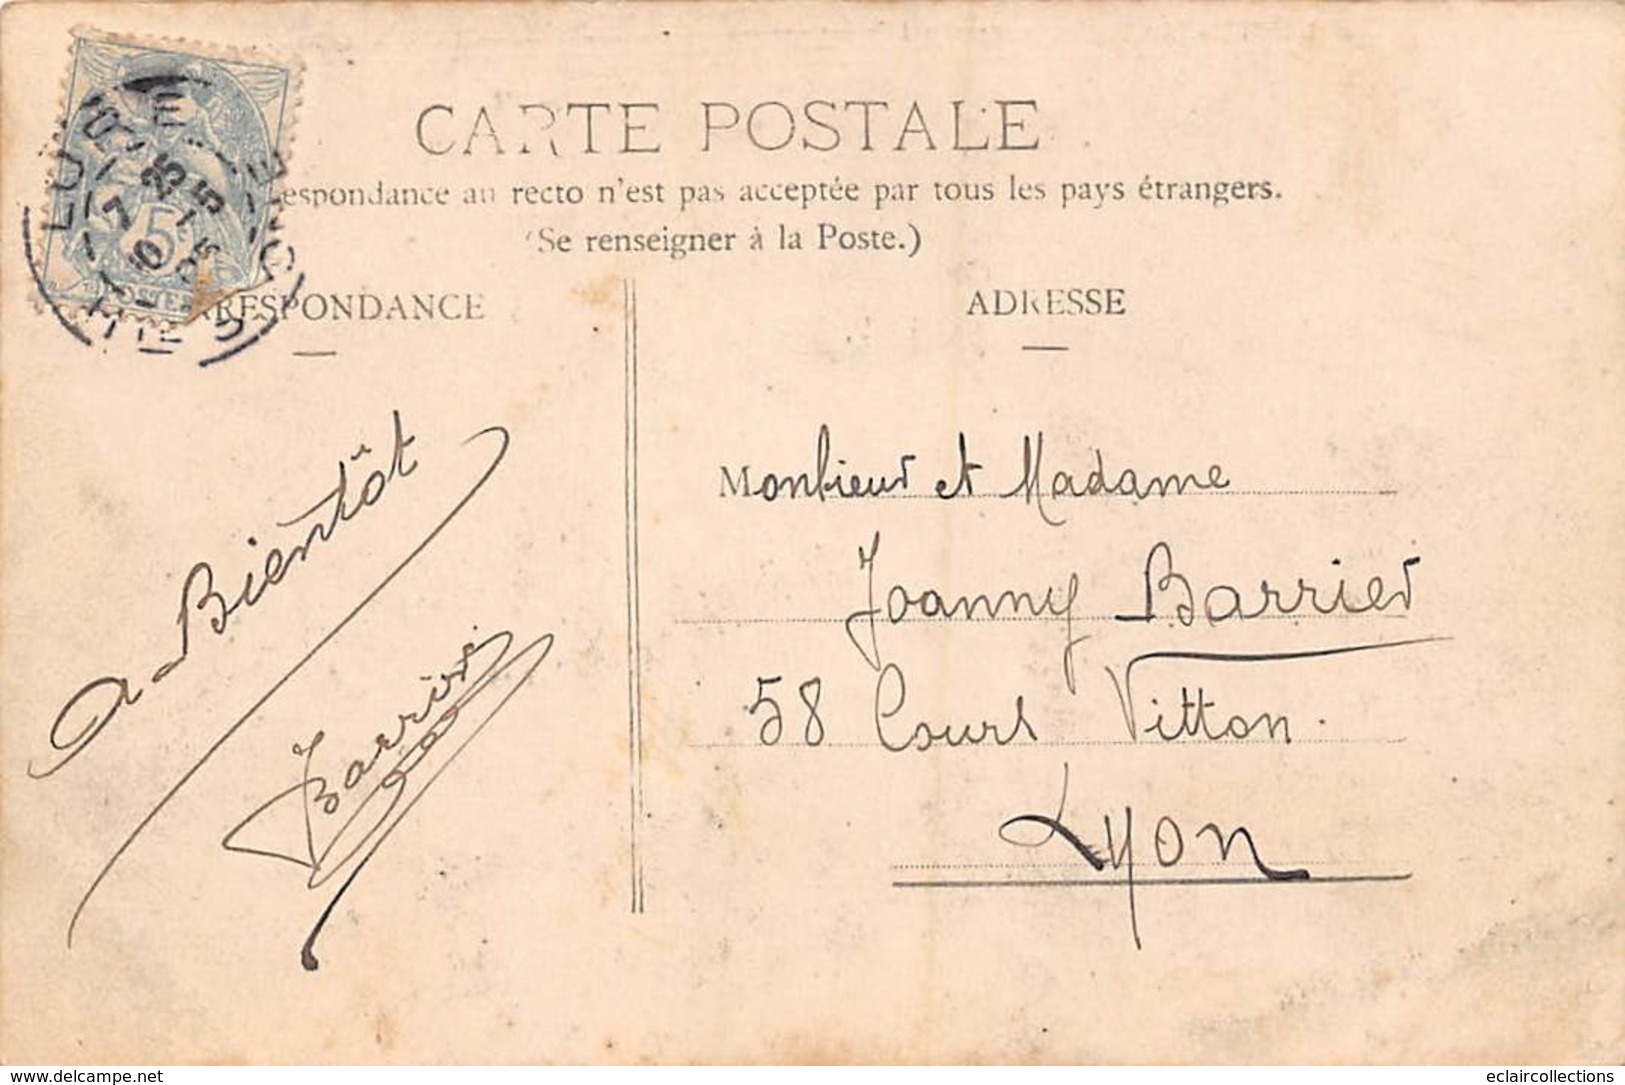 CARTE POSTALE
espondance au recto n'est pas acceptée par tous les pays étrangers.
(Se renseigner à la Poste.)
RESPONDANCE
ADRESSE
5
POSTES
7 25
10 -5
05
A Bientôt
Monsieur et Madame
Joanny Barrier
58 Cours Vitton.
Lyon
www.delcampe.net
eclaircollections